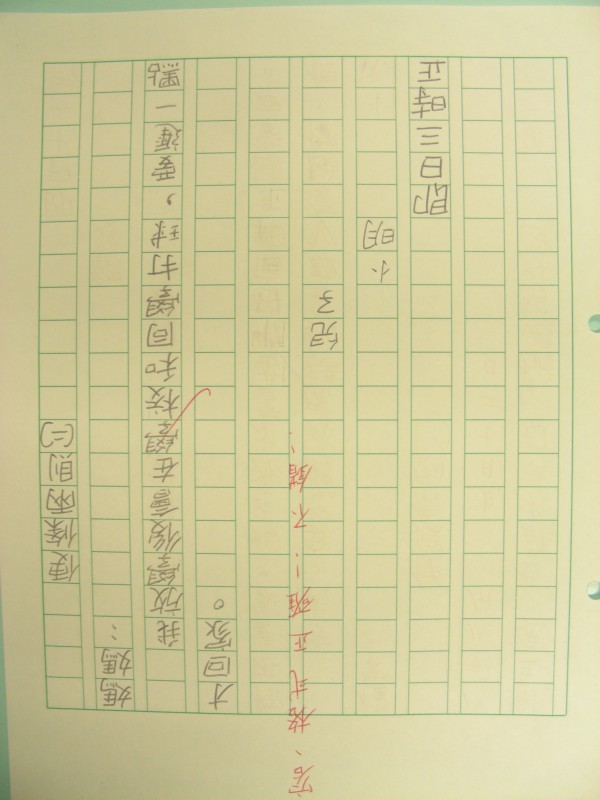 便條兩則(二)
媽媽：
我放學後會在學校和同學打球，要遲一點
才回家。
兒子
小明
即日三時正
容、格式正確！不錯！